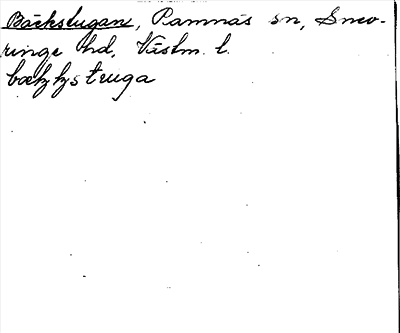 Bäckstugan, Ramnäs sn, Snev-
ringe hd, Västm. l.